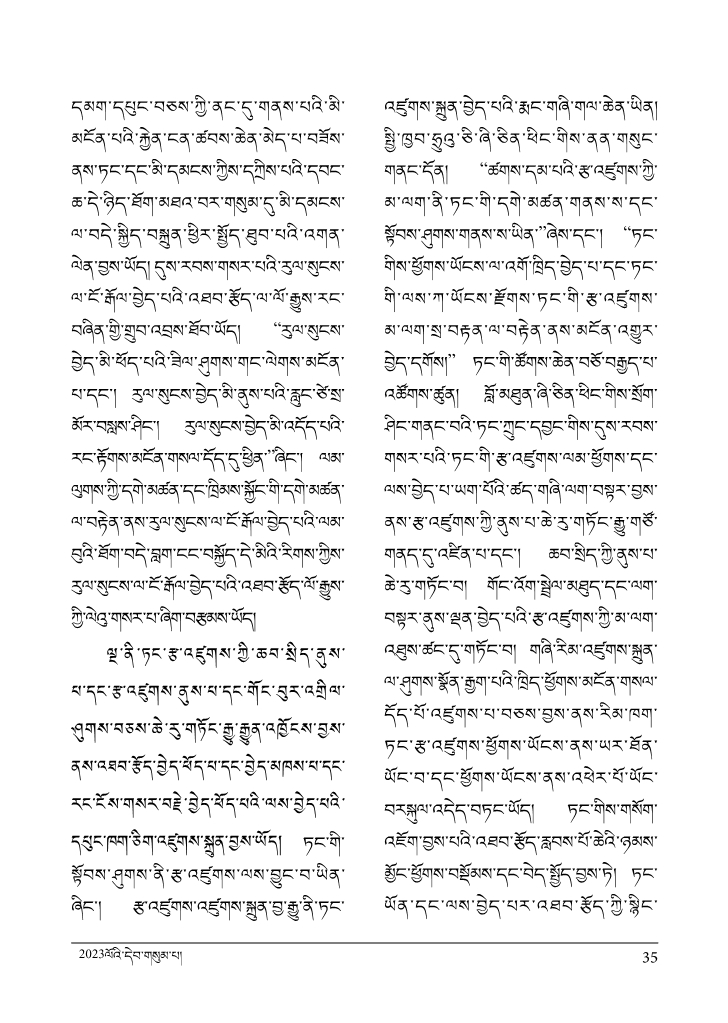 དམག་དཔུང་བཅས་ཀྱི་ནང་དུ་གནས་པའི་མི་
མངོན་པའི་རྐྱེན་ངན་ཚབས་ཆེན་མེད་པ་བཟོས་
ནས་ཏང་དང་མི་དམངས་ཀྱིས་དཀྲིས་པའི་དབང་
ཆ་དེ་ཉིད་ཐོག་མཐའ་བར་གསུམ་དུ་མི་དམངས་
ལ་བདེ་སྐྱིད་བསྐྲུན་ཕྱིར་སྤྱོད་ཐུབ་པའི་འགན་
ལེན་བྱས་ཡོད། དུས་རབས་གསར་པའི་རུལ་སུངས་
ལ་ངོ་རྒོལ་བྱེད་པའི་འཐབ་རྩོད་ལ་ལོ་རྒྱུས་རང་
བཞིན་གྱི་གྲུབ་འབྲས་ཐོབ་ཡོད། “རུལ་སུངས་
བྱེད་མི་ཕོད་པའི་ཟིལ་ཤུགས་གང་ལེགས་མངོན་
པ་དང་། རུལ་སུངས་བྱེད་མི་ནུས་པའི་རླུང་ཙེ་སྲ་
མོར་བསླས་ཤིང་། རུལ་སུངས་བྱེད་མི་འདོད་པའི་
རང་རྟོགས་མངོན་གསལ་དོད་དུ་ཕྱིན་”ཞིང་། ལམ་
ལུགས་ཀྱི་དགེ་མཚན་དང་ཁྲིམས་སྐྱོང་གི་དགེ་མཚན་
ལ་བརྟེན་ནས་རུལ་སུངས་ལ་ངོ་རྒོལ་བྱེད་པའི་ལམ་
བུའི་ཐོག་བདེ་བླག་ངང་བསྐྱོད་དེ་མིའི་རིགས་ཀྱིས་
རུལ་སུངས་ལ་ངོ་རྒོལ་བྱེད་པའི་འཐབ་རྩོད་ལོ་རྒྱུས་
ཀྱི་ལེའུ་གསར་པ་ཞིག་བརྩམས་ཡོད།
ལྔ་ནི་ཏང་རྩ་འཛུགས་ཀྱི་ཆབ་སྲིད་ནུས་
པ་དང་རྩ་འཛུགས་ནུས་པ་དང་གོང་བུར་འགྲིལ་
ཤུགས་བཅས་ཆེ་རུ་གཏོང་རྒྱུ་རྒྱུན་འཁྱོངས་བྱས་
ནས་འཐབ་རྩོད་བྱེད་ཕོད་པ་དང་བྱེད་མཁས་པ་དང་
རང་ངོས་གསར་བརྗེ་བྱེད་ཕོད་པའི་ལས་བྱེད་པའི་
དཔུང་ཁག་ཅིག་འཛུགས་སྐྲུན་བྱས་ཡོད། ཏང་གི་
སྟོབས་ཤུགས་ནི་རྩ་འཛུགས་ལས་བྱུང་བ་ཡིན་
ཞིང་། རྩ་འཛུགས་འཛུགས་སྐྲུན་བྱ་རྒྱུ་ནི་ཏང་
འཛུགས་སྐྲུན་བྱེད་པའི་རྨང་གཞི་གལ་ཆེན་ཡིན།
སྤྱི་ཁྱབ་ཧྲུའུ་ཅི་ཞི་ཅིན་ཕིང་གིས་ནན་གསུང་
གནང་དོན། “ཚགས་དམ་པའི་རྩ་འཛུགས་ཀྱི་
མ་ལག་ནི་ཏང་གི་དགེ་མཚན་གནས་ས་དང་
སྟོབས་ཤུགས་གནས་ས་ཡིན་”ཞེས་དང་། “ཏང་
གིས་ཕྱོགས་ཡོངས་ལ་འགོ་ཁྲིད་བྱེད་པ་དང་ཏང་
གི་ལས་ཀ་ཡོངས་རྫོགས་ཏང་གི་རྩ་འཛུགས་
མ་ལག་སྲ་བརྟན་ལ་བརྟེན་ནས་མངོན་འགྱུར་
བྱེད་དགོས།” ཏང་གི་ཚོགས་ཆེན་བཅོ་བརྒྱད་པ་
འཚོགས་ཚུན། བློ་མཐུན་ཞི་ཅིན་ཕིང་གིས་སྲོག་
ཤིང་གནང་བའི་ཏང་ཀྲུང་དབྱང་གིས་དུས་རབས་
གསར་པའི་ཏང་གི་རྩ་འཛུགས་ལམ་ཕྱོགས་དང་
ལས་བྱེད་པ་ཡག་པོའི་ཚད་གཞི་ལག་བསྟར་བྱས་
ནས་རྩ་འཛུགས་ཀྱི་ནུས་པ་ཆེ་རུ་གཏོང་རྒྱུ་གཙོ་
གནད་དུ་འཛིན་པ་དང་། ཆབ་སྲིད་ཀྱི་ནུས་པ་
ཆེ་རུ་གཏོང་བ། གོང་འོག་སྦྲེལ་མཐུད་དང་ལག་
བསྟར་ནུས་ལྡན་བྱེད་པའི་རྩ་འཛུགས་ཀྱི་མ་ལག་
འཐུས་ཚང་དུ་གཏོང་བ། གཞི་རིམ་འཛུགས་སྐྲུན་
ལ་ཤུགས་སྣོན་རྒྱག་པའི་ཁྲིད་ཕྱོགས་མངོན་གསལ་
དོད་པོ་འཛུགས་པ་བཅས་བྱས་ནས་རིམ་ཁག་
ཏང་རྩ་འཛུགས་ཕྱོགས་ཡོངས་ནས་ཡར་ཐོན་
ཡོང་བ་དང་ཕྱོགས་ཡོངས་ནས་འཕེར་པོ་ཡོང་
བརསྐུལ་འདེད་བཏང་ཡོད། ཏང་གིས་གསོག་
འཇོག་བྱས་པའི་འཐབ་རྩོད་རླབས་པོ་ཆེའི་ཉམས་
མྱོང་ཕྱོགས་བསྡོམས་དང་བེད་སྤྱོད་བྱས་ཏེ། ཏང་
ཡོན་དང་ལས་བྱེད་པར་འཐབ་རྩོད་ཀྱི་སྙིང་
2023ལོའི་དེབ་གསུམ་པ།
35